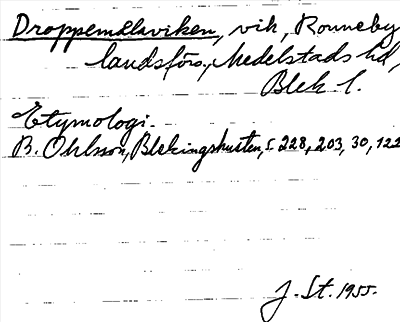 Droppemålaviken, vik, Ronneby
landsförs., Medelstads hd,
Blek l.
Etymologi.
B. Ohlsson, Blekingskusten, s 228, 203, 30, 122
J. St. 1955.